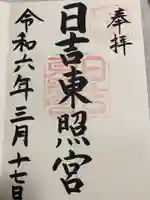 奉拝
日吉東照宮
令和六年三月十七日